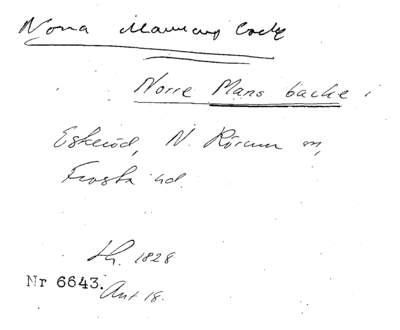 Norra Mannas backe
Norre Mans backe i
Eskeröd, N. Rörum sn,
Frosta hd.
Lh. 1828
Nr 6643. Ant 18.